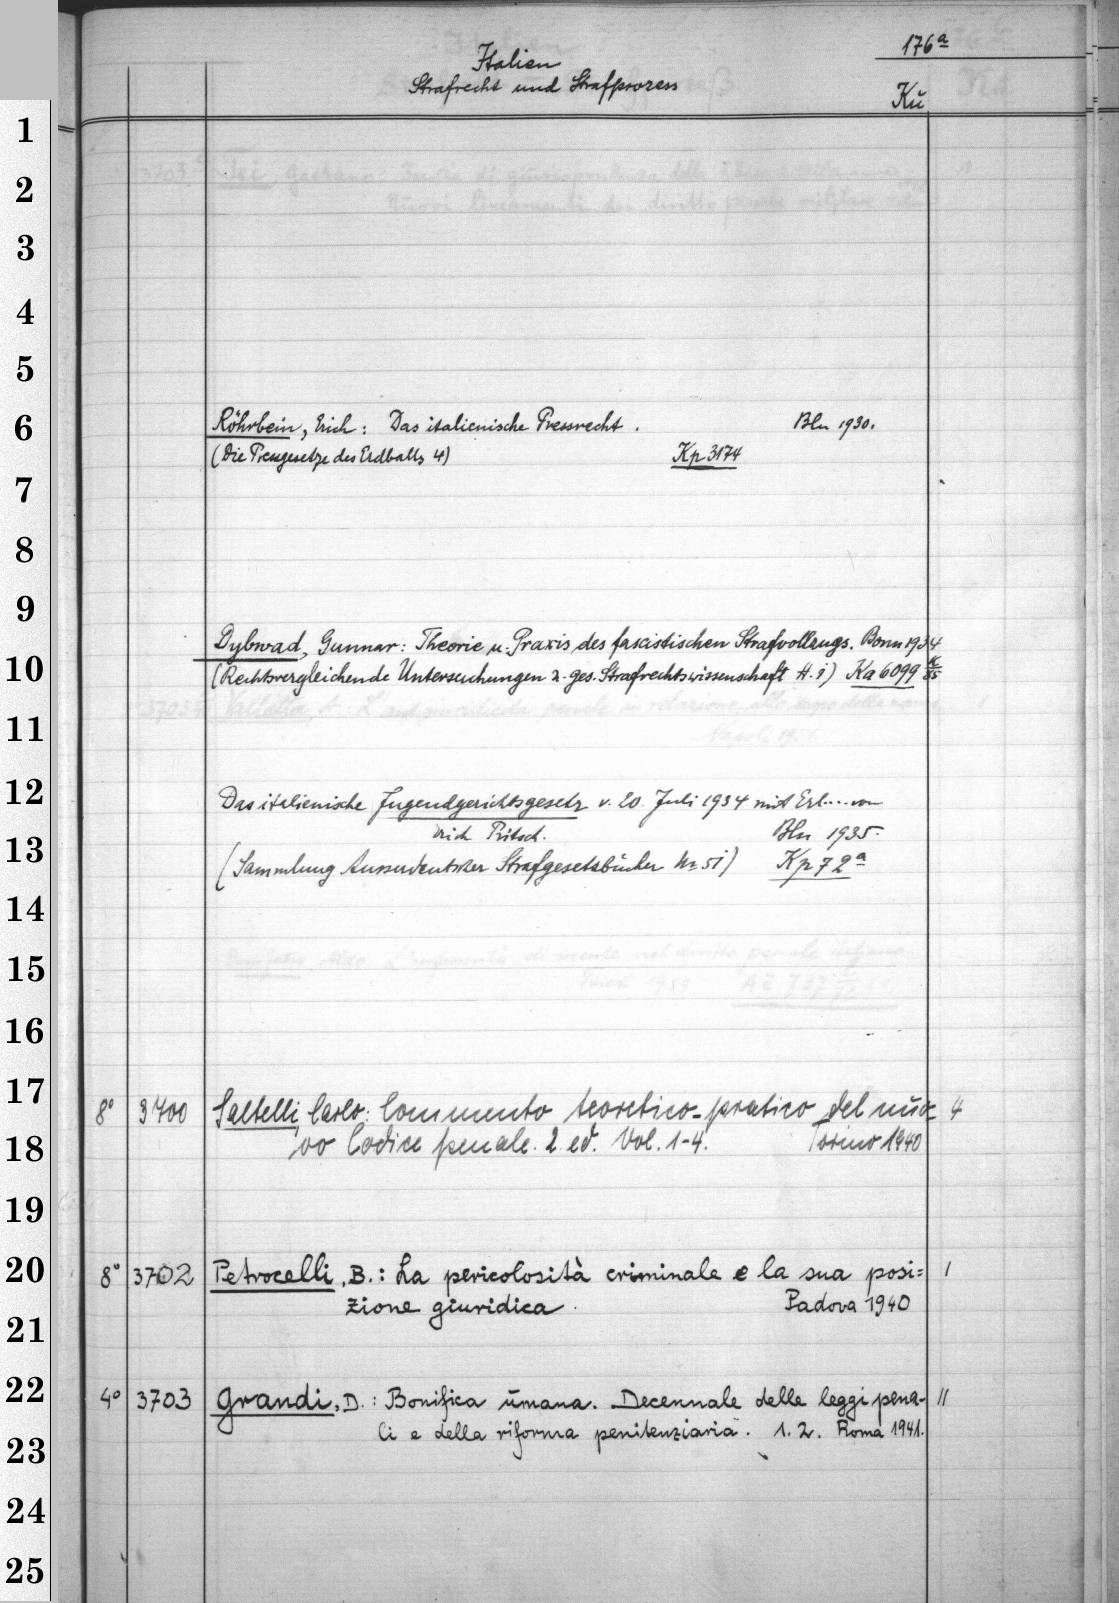 176ª
Italien
Strafrecht und Strafprozess
Kü
1
2
3
4
5
6
Röhrbein, Erich: Das italienische Pressrecht. Bln 1930.
(Die Pressgesetze des Erdballs 4) Kp 3174
7
8
9
Dybwad, Gunnar: Theorie u. Praxis des fascistischen Strafvollzugs. Bonn 1934
10
(Rechtsvergleichende Untersuchungen z. ges. Strafrechtswissenschaft H. i) Ka 6099
11
12
Das italienische Jugendgerichtsgesetz v. 20. Juli 1934 mit Erl.... von
Erich Pritsch. Bln 1935.
13
(Sammlung Ausserdeutscher Strafgesetzbücher Nr 51) Kp 72ª
14
15
16
17
8° 3700 Saltelli, Carlo: Commento teoretico-pratico del nuo= 4
18
vo Codice penale. 2 ed. Vol. 1-4. Torino 1940
19
20
8° 3702 Petrocelli, B.: La pericolosità criminale e la sua posi= 1
zione giuridica. Padova 1940
21
22
4° 3703 Grandi, D.: Bonifica ūmana. Decennale delle leggi pena- II
23
li e della riforma penitenziaria. 1. 2. Roma 1941.
24
25